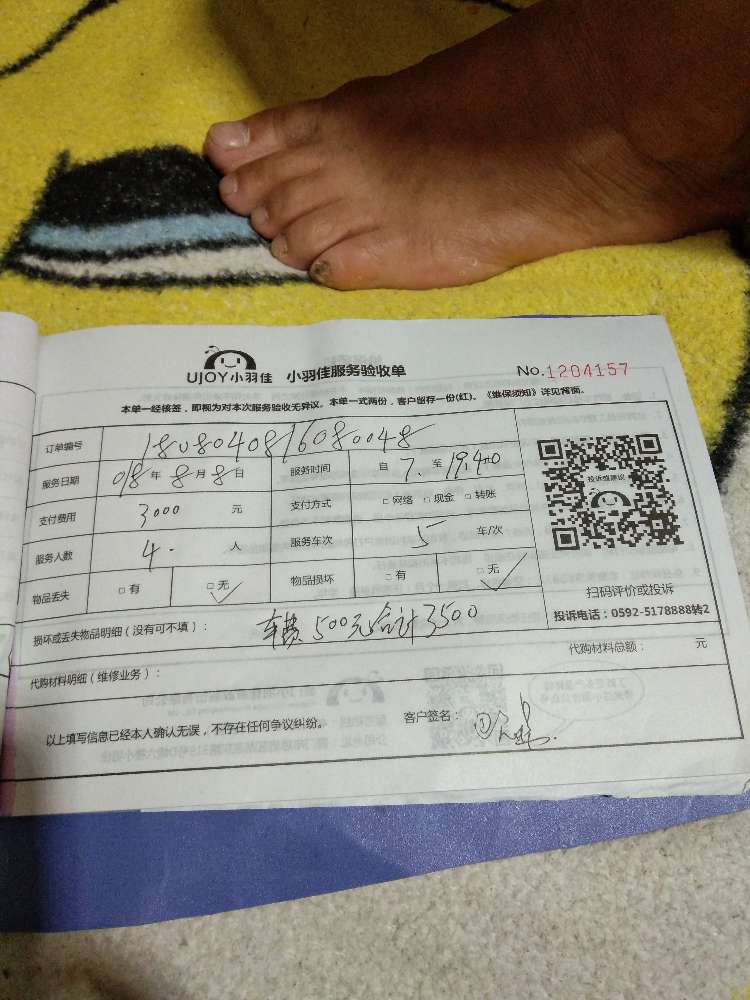 UJOY小羽佳 小羽佳服务验收单 No.1204157
本单一经核签，即视为对本次服务验收无异议。本单一式两份，客户留存一份(红)。《维保须知》详见背面。
订单编号 180804081608 0048
服务日期 018年8月8日 服务时间 自 7. 至 19:40
支付费用 3000 元 支付方式 □网络 □现金 □转账
服务人数 4. 人 服务车次 5 车/次
物品丢失 □有 □无 ✓ 物品损坏 □有 □无 ✓
投诉或建议
扫码评价或投诉
投诉电话：0592-5178888转2
损坏或丢失物品明细（没有可不填）： 车费500元合计3500
代购材料明细（维修业务）： 代购材料总额： 元
以上填写信息已经本人确认无误，不存在任何争议纠纷。 客户签名：